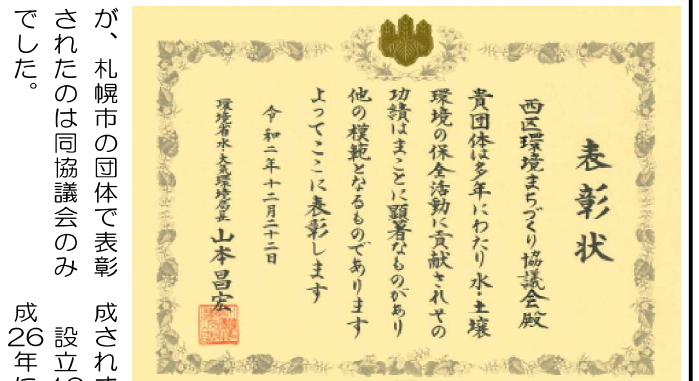 表彰状
西区環境まちづくり協議会殿
貴団体は多年にわたり水・土壌
環境の保全活動に貢献されその
功績はまことに顕著なものがあり
他の模範となるものであります
よってここに表彰します
令和二年十二月二十二日
環境省水・大気環境局長 山本昌宏
が、札幌市の団体で表彰
されたのは同協議会のみ
でした。
成されま
設立10
成26年に